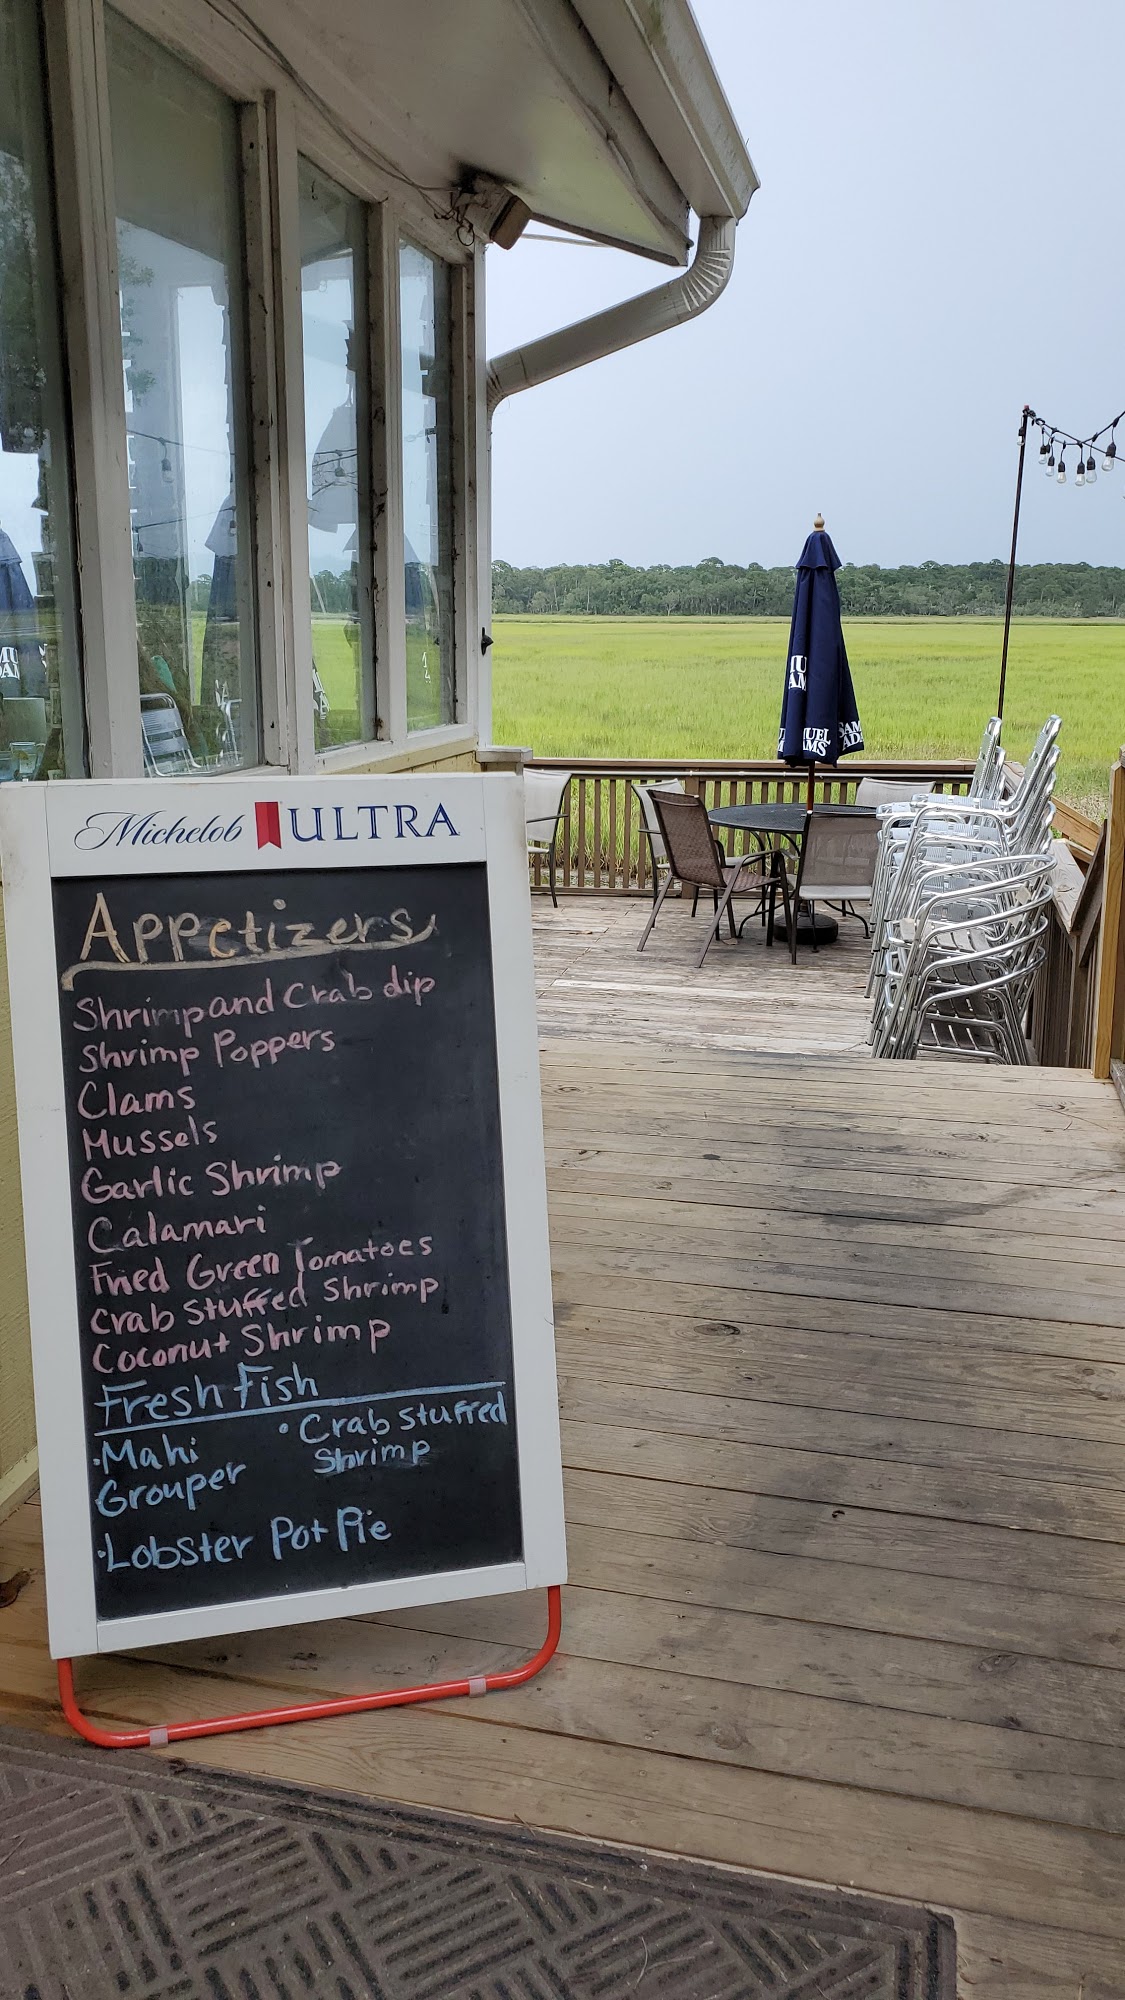 Michelob ULTRA
Appetizers
Shrimp and Crab dip
Shrimp Poppers
Clams
Mussels
Garlic Shrimp
Calamari
Fried Green Tomatoes
Crab Stuffed Shrimp
Coconut Shrimp
Fresh Fish
• Mahi
• Grouper
• Crab Stuffed
Shrimp
• Lobster Pot Pie
MUEL
AMS
SAM
ADA